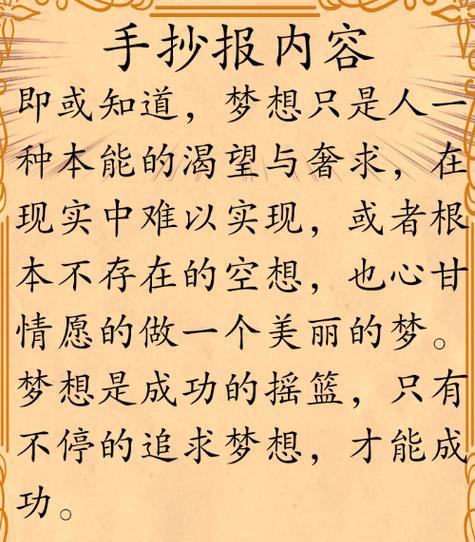 手抄报内容
即或知道，梦想只是人一
种本能的渴望与奢求，在
现实中难以实现，或者根
本不存在的空想，也心甘
情愿的做一个美丽的梦。
梦想是成功的摇篮，只有
不停的追求梦想，才能成
功。